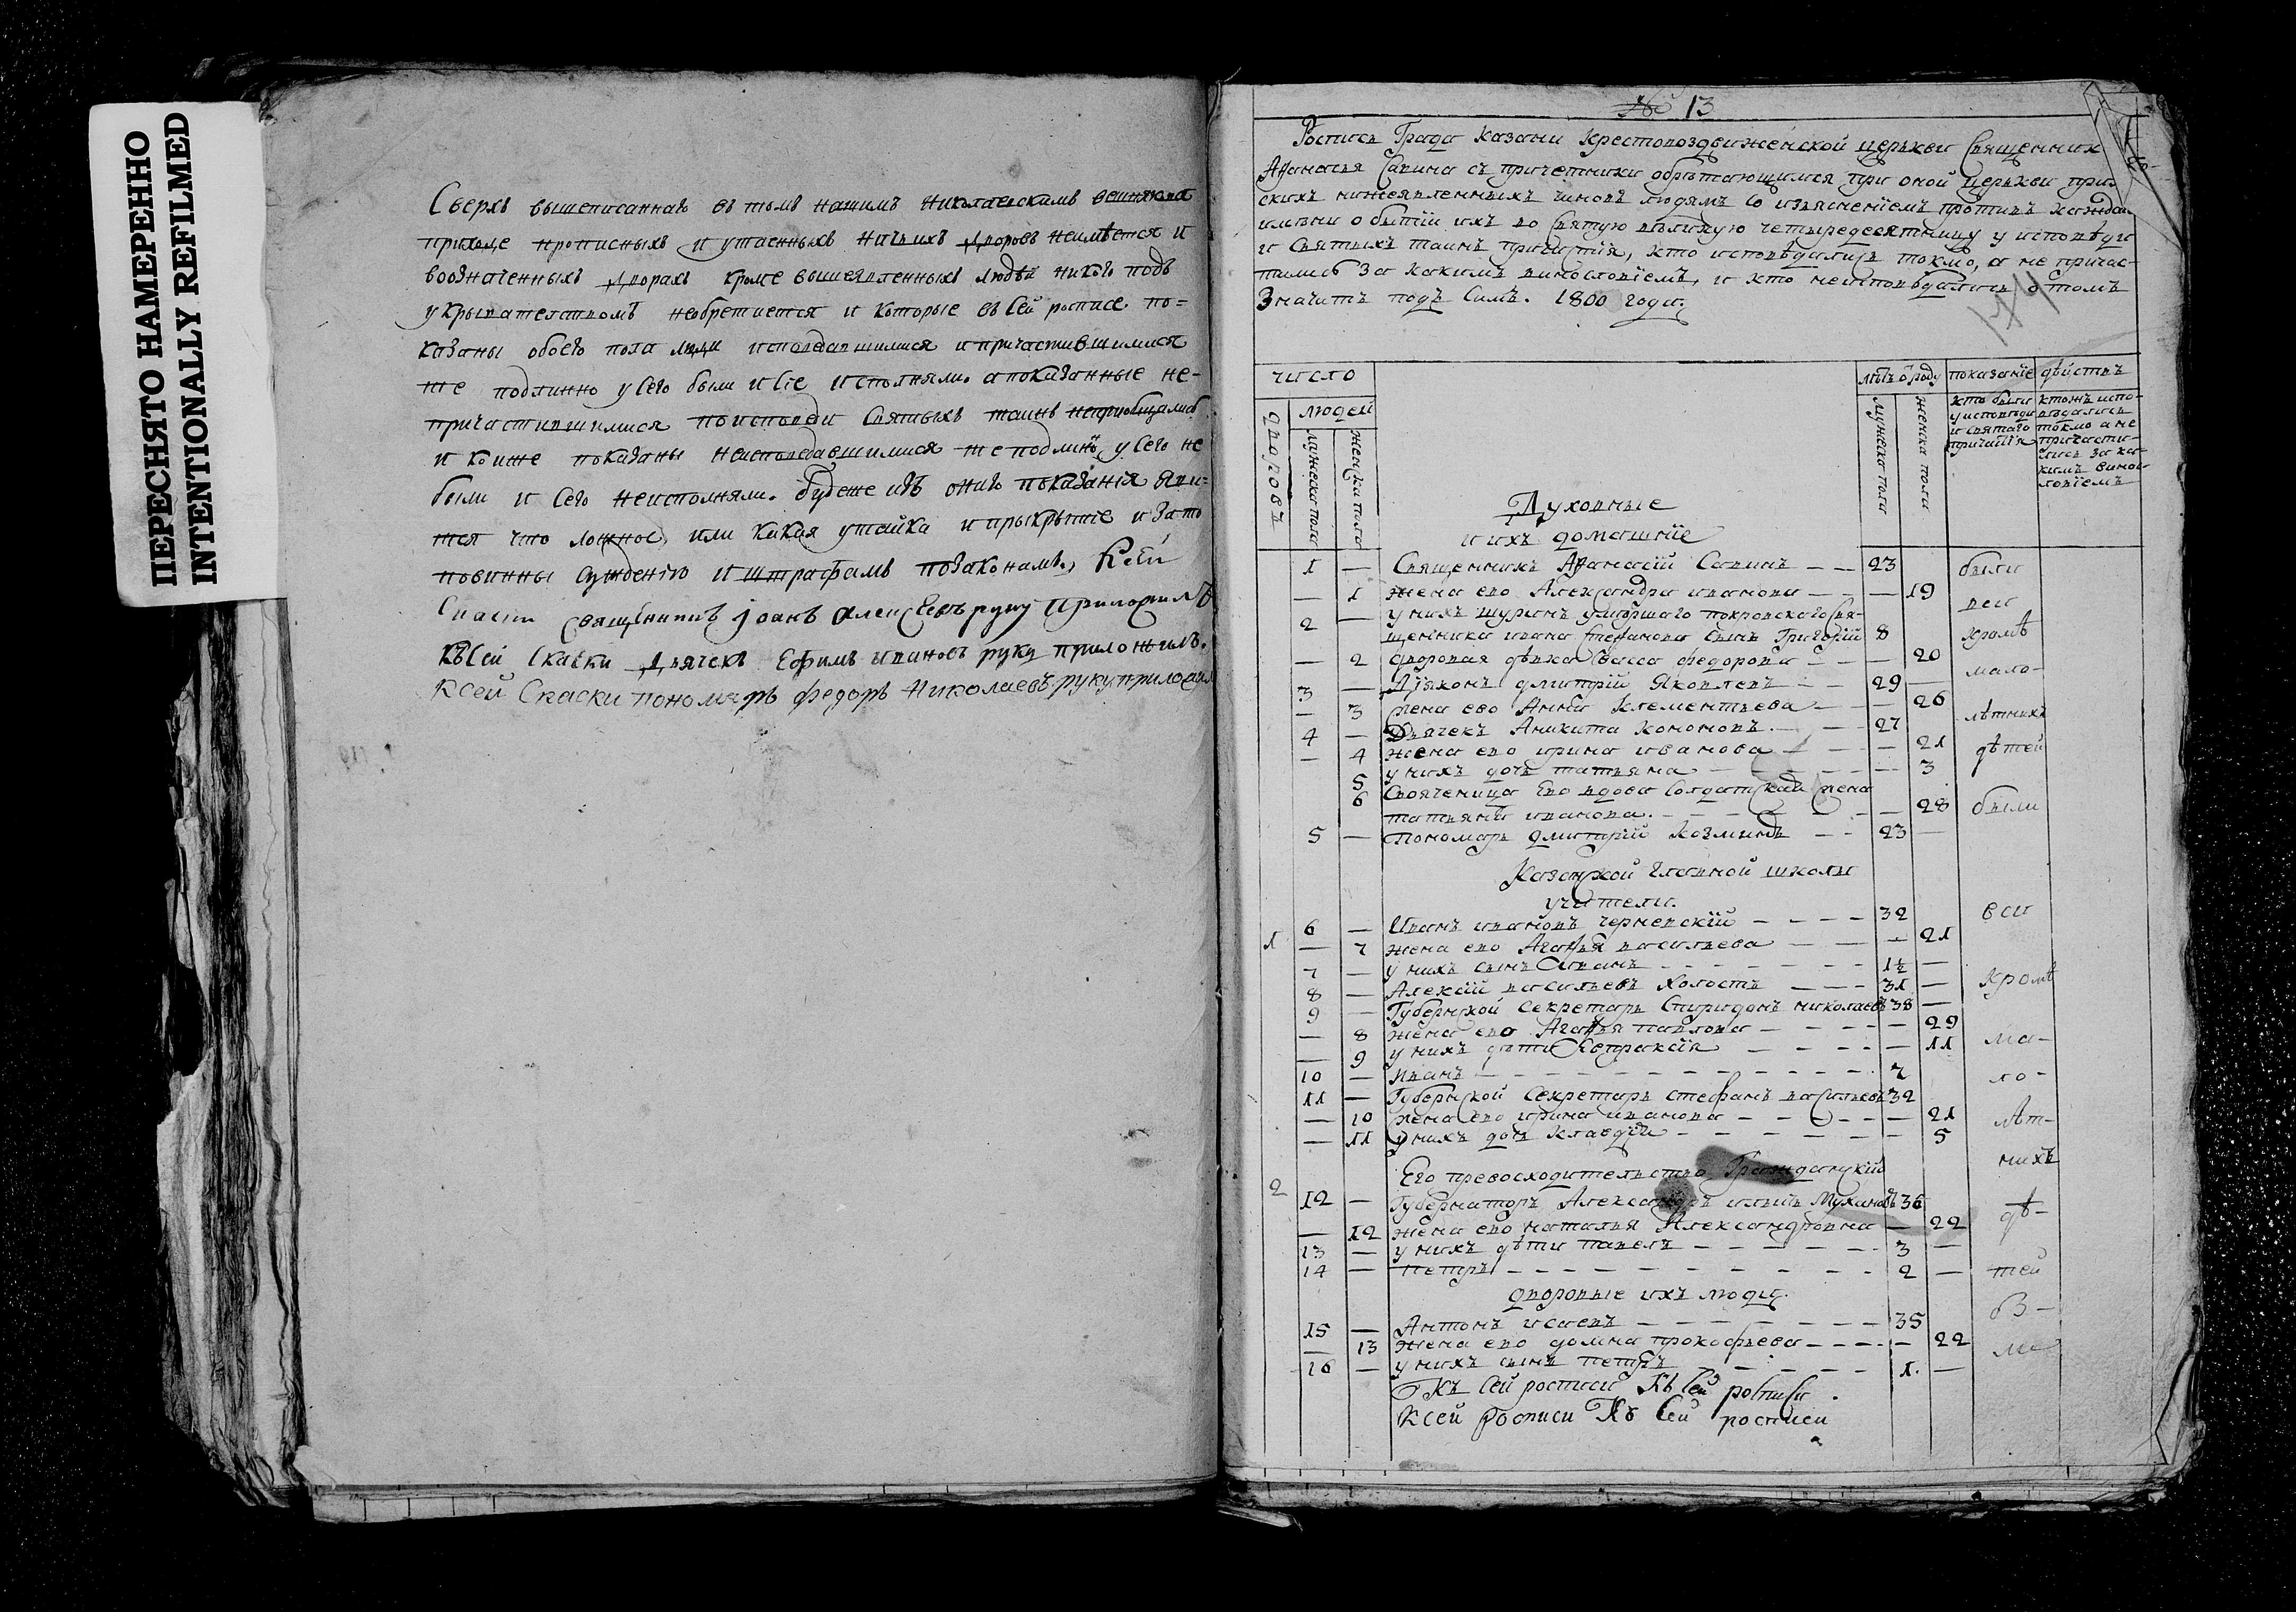 ПЕРЕСНЯТО НАМЕРЕННО
INTENTIONALLY REFILMED
Сверхъ вышеписаннаго въ томъ нашимъ Николаевскимъ
приходе прописныхъ и утаенныхъ ничьихъ дворовъ неимѣется и
вообначенныхъ дворахъ кроме вышеявленныхъ людѣй никого подъ
укрывателствомъ необретается и которые въ сей росписе по=
казаны обоего пола люди исповедавшимися и причастившимися
те подлинно у Сего были и Сіе исполняли. а показанные не-
причастившимися поисповеди Святыхъ таинъ неприобщались
и кои же показаны неисповедавшимися те подлинно у Сего не
были и Сего неисполняли. будеже изъ оного показанія яви=
тся что ложное, или какая утайка и прыкрытіе и зато
повинны суждению и штрафамъ позакономъ, Ксей
Скаски священникъ Іоанъ Алексеевъ руку приложилъ
Къ Сей Скаски Дьячекъ Ефимъ ивановъ руку приложилъ.
Ксей Скаски пономарь федоръ Николаевъ руку приложил
№ 13
Роспись Града Казани Крестовоздвиженской церькви Священник
Афанасья Савина съ причетники обрѣтающимся при оной церькви при
скихъ нижеявленныхъ чиновъ людямъ со изъяснениемъ противъ каждо
имѣни о бытіи ихъ во святую вѣликую четыредесятницу у исповѣди
и Святыхъ таинъ причастія, кто исповѣдались токмо, а не причас-
тились за какимъ винословіемъ, и кто неисповѣдались о томъ
Значитъ подъ Симъ. 1800 года.
174
число
людей
дворовъ
мужеска пола
женска пола
лѣтъ о роду
мужеска пола
женска пола
показаніе дѣйствъ
кто были у исповѣди и святаго причастія
ктожъ испо- вѣдались токмо а не причасти- лись за ка- кимъ вино- словіемъ
Духовные
и ихъ домашніе
1 — Священникъ Афанасій Савинъ — — 23 были
— 1 жена ево Александра иванова — — 19 вси
2 — у нихъ шуринъ умършаго покровскаго Свя-
щенника ивана Стефанова сынъ Григорій 8 кромѣ
— 2 дворовая дѣвка Васса федорова — — — 20 мало-
3 — Діяконъ дмитрій Яковлевъ — — 29 —
— 3 жена ево Анна Клементьева — — — 26 лѣтнихъ
4 — Дьячекъ Аникита Кононовъ. — — 27
— 4 жена ево ирина иванова — — — 21 дѣтей
5 у нихъ дочь татьяна — — — — 3
6 Свояченица Ево вдова Солдатская жена
татьяна иванова. — — — — — 28 были
5 — Пономарь дмитрій Козминъ — — 23 —
Казанской главной школы
учители.
1 6 — Иванъ ивановъ Черневскій — — — — 32 вси
— 7 жена ево Агафья васильева — — — 21
7 — у нихъ сынъ Иванъ — — — — — 1½ —
8 — Алексій васильевъ холостъ — — — 31 — кромѣ
9 — Губернской Секретарь Спиридонъ николаевъ 38 —
— 8 жена ево Агафья павлова — — — — 29
— 9 у нихъ дѣти Евпраксія — — — — 11 ма-
10 — Иванъ — — — — — — 7 ло-
11 — Губернской Секретарь стефанъ васильевъ 32
— 10 жена ево ирина иванова — — — — 21 лѣт-
— 11 у нихъ дочь клавдіи — — — — 5
Его превосходительство Гражданскій нихъ
2 12 — Губернаторъ Александръ ильичь Мухановъ 36
— 12 жена ево наталья Александровна — 22 дѣ-
13 — у нихъ дѣти павелъ — — — — 3 —
14 — петръ — — — — — — 2 — тей
дворовые ихъ люди.
15 — Антонъ исаевъ — — — — — 35 вз-
— 13 жена ево домна прокофьева — — — — 22
16 — у нихъ сынъ петръ — — — — 1. —
Къ Сей росписи Къ Сей росписи
Ксей росписи Къ Сей росписи